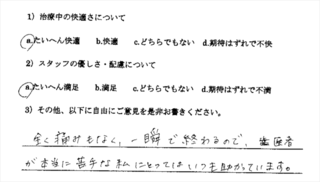 1）治療中の快適さについて
a.たいへん快適　b.快適　c.どちらでもない　d.期待はずれで不快
2）スタッフの優しさ・配慮について
a.たいへん満足　b.満足　c.どちらでもない　d.期待はずれで不満
3）その他、以下に自由にご意見を是非お書きください。
全く痛みもなく、一瞬で終わるので、歯医者
が本当に苦手な私にとってはいつも助かっています。